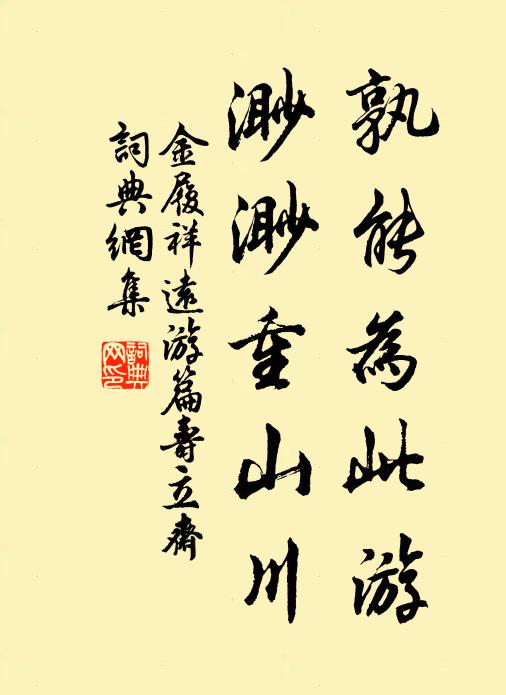 孰能為此游
渺渺重山川
金履祥遠游篇壽立齋
詞典網集
詞典
网印